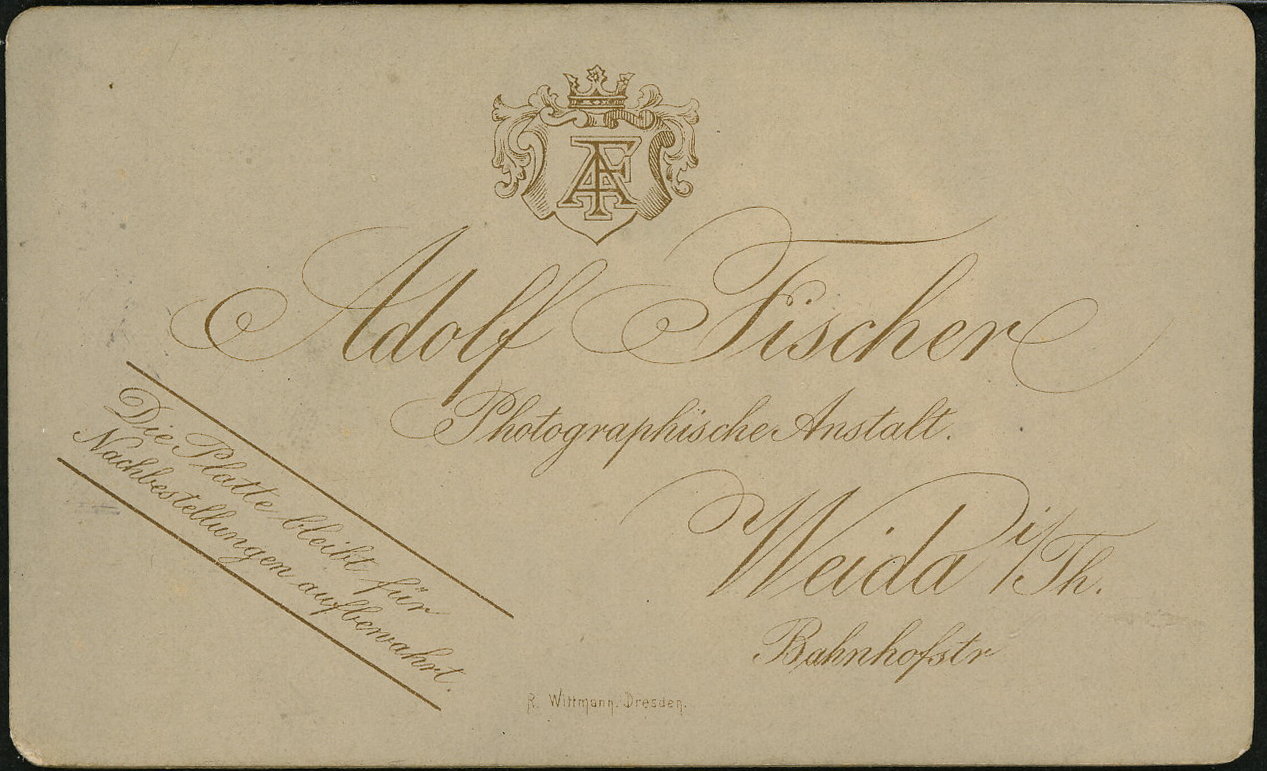 AF
Adolf Fischer
Photographische Anstalt.
Weida i/Th.
Bahnhofstr
Die Platte bleibt für
Nachbestellungen aufbewahrt.
R. Wittmann. Dresden.